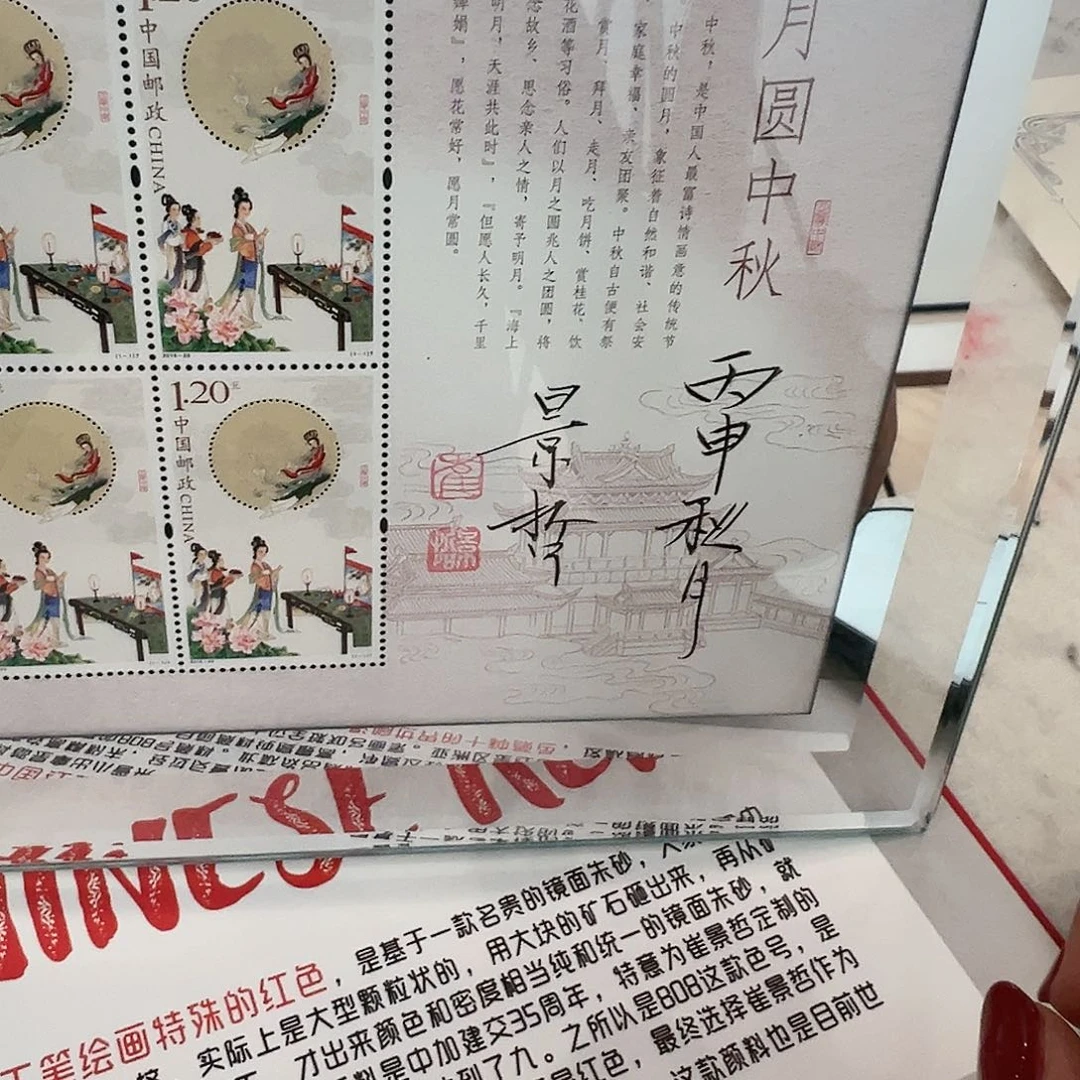 月圆中秋
中秋,是中国人最富诗情画意的传统节
中秋的圆月,象征着自然和谐、社会安
家庭幸福、亲友团聚。中秋自古便有祭
赏月、拜月、走月、吃月饼、赏桂花、饮
花酒等习俗。人们以月之圆兆人之团圆,将
念故乡、思念亲人之情,寄予明月。『海上
明月,天涯共此时』,『但愿人长久,千里
婵娟』,愿花常好,愿月常圆。
丙申秋月
景哲
1.20
中国邮政CHINA
1.20元
中国邮政CHINA
INESE
工笔绘画特殊的红色,是基于一款名贵的镜面朱砂,
实际上是大型颗粒状的,用大块的矿石砸出来,再从矿
才出来颜色和密度相当纯和统一的镜面朱砂,就
料是中加建交35周年,特意为崔景哲定制的
到了九。之所以是808这款色号,是
是红色,最终选择崔景哲作为
这款颜料也是目前世